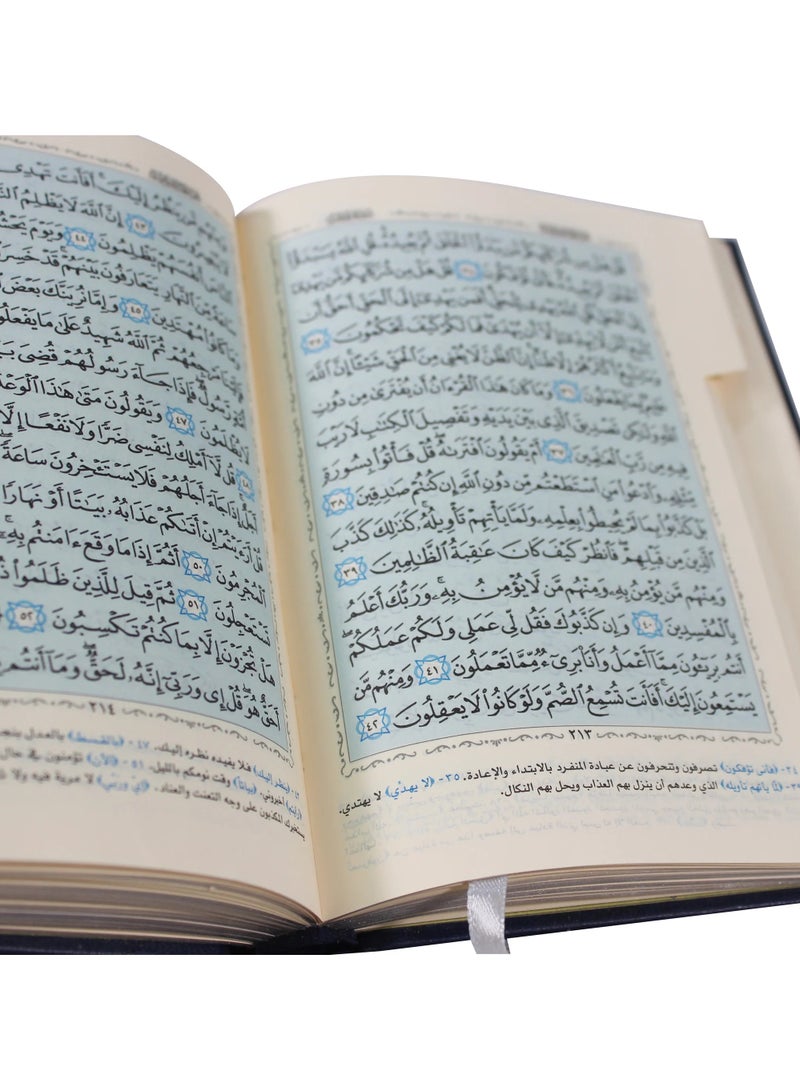 قُلْ هَلْ مِن شُرَكَآئِكُم مَّن يَبْدَؤُا۟ ٱلْخَلْقَ ثُمَّ يُعِيدُهُۥ قُلِ ٱللَّهُ يَبْدَؤُا۟
ٱلْخَلْقَ ثُمَّ يُعِيدُهُۥ فَأَنَّىٰ تُؤْفَكُونَ ٣٤ قُلْ هَلْ مِن شُرَكَآئِكُم مَّن يَهْدِىٓ
إِلَى ٱلْحَقِّ قُلِ ٱللَّهُ يَهْدِى لِلْحَقِّ أَفَمَن يَهْدِىٓ إِلَى ٱلْحَقِّ أَحَقُّ أَن
يُتَّبَعَ أَمَّن لَّا يَهِدِّىٓ إِلَّآ أَن يُهْدَىٰ فَمَا لَكُمْ كَيْفَ تَحْكُمُونَ ٣٥
وَمَا يَتَّبِعُ أَكْثَرُهُمْ إِلَّا ظَنًّا إِنَّ ٱلظَّنَّ لَا يُغْنِى مِنَ ٱلْحَقِّ شَيْـًٔا إِنَّ ٱللَّهَ
عَلِيمٌۢ بِمَا يَفْعَلُونَ ٣٦ وَمَا كَانَ هَٰذَا ٱلْقُرْءَانُ أَن يُفْتَرَىٰ مِن دُونِ
ٱللَّهِ وَلَٰكِن تَصْدِيقَ ٱلَّذِى بَيْنَ يَدَيْهِ وَتَفْصِيلَ ٱلْكِتَٰبِ لَا رَيْبَ
فِيهِ مِن رَّبِّ ٱلْعَٰلَمِينَ ٣٧ أَمْ يَقُولُونَ ٱفْتَرَىٰهُ قُلْ فَأْتُوا۟ بِسُورَةٍ
مِّثْلِهِۦ وَٱدْعُوا۟ مَنِ ٱسْتَطَعْتُم مِّن دُونِ ٱللَّهِ إِن كُنتُمْ صَٰدِقِينَ ٣٨
بَلْ كَذَّبُوا۟ بِمَا لَمْ يُحِيطُوا۟ بِعِلْمِهِۦ وَلَمَّا يَأْتِهِمْ تَأْوِيلُهُۥ كَذَٰلِكَ كَذَّبَ
ٱلَّذِينَ مِن قَبْلِهِمْ فَٱنظُرْ كَيْفَ كَانَ عَٰقِبَةُ ٱلظَّٰلِمِينَ ٣٩
وَمِنْهُم مَّن يُؤْمِنُ بِهِۦ وَمِنْهُم مَّن لَّا يُؤْمِنُ بِهِۦ وَرَبُّكَ أَعْلَمُ
بِٱلْمُفْسِدِينَ ٤٠ وَإِن كَذَّبُوكَ فَقُل لِّى عَمَلِى وَلَكُمْ عَمَلُكُمْ
أَنتُم بَرِيٓـُٔونَ مِمَّآ أَعْمَلُ وَأَنَا۠ بَرِىٓءٌ مِّمَّا تَعْمَلُونَ ٤١ وَمِنْهُم مَّن
يَسْتَمِعُونَ إِلَيْكَ أَفَأَنتَ تُسْمِعُ ٱلصُّمَّ وَلَوْ كَانُوا۟ لَا يَعْقِلُونَ ٤٢
٢١٣
٣٤- ﴿فأنى تؤفكون﴾ تصرفون وتنحرفون عن عبادة المنفرد بالابتداء والإعادة. ٣٥- ﴿لا يهدِّي﴾ لا يهتدي.
﴿لمَّا يأتهم تأويله﴾ الذي وعدهم أن ينزل بهم العذاب ويحل بهم النكال.
وَمِنْهُم مَّن يَنظُرُ إِلَيْكَ أَفَأَنتَ تَهْدِى
لَا يُبْصِرُونَ ٤٣ إِنَّ ٱللَّهَ لَا يَظْلِمُ
ٱلنَّاسَ أَنفُسَهُمْ يَظْلِمُونَ ٤٤ وَيَوْمَ
سَاعَةً مِّنَ ٱلنَّهَارِ يَتَعَارَفُونَ بَيْنَهُمْ قَدْ خَسِرَ
وَمَا كَانُوا۟ مُهْتَدِينَ ٤٥ وَإِمَّا نُرِيَنَّكَ بَعْضَ
فَإِلَيْنَا مَرْجِعُهُمْ ثُمَّ ٱللَّهُ شَهِيدٌ عَلَىٰ مَا يَفْعَلُونَ
أُمَّةٍ رَّسُولٌ فَإِذَا جَآءَ رَسُولُهُمْ قُضِىَ
لَا يُظْلَمُونَ ٤٧ وَيَقُولُونَ مَتَىٰ هَٰذَا ٱلْوَعْدُ
٤٨ قُل لَّآ أَمْلِكُ لِنَفْسِى ضَرًّا وَلَا نَفْعًا إِلَّا
أَجَلٌ إِذَا جَآءَ أَجَلُهُمْ فَلَا يَسْتَـْٔخِرُونَ سَاعَةً
قُلْ أَرَءَيْتُمْ إِنْ أَتَىٰكُمْ عَذَابُهُۥ بَيَٰتًا أَوْ نَهَارًا
ٱلْمُجْرِمُونَ ٥٠ أَثُمَّ إِذَا مَا وَقَعَ ءَامَنتُم بِهِۦٓ
تَسْتَعْجِلُونَ ٥١ ثُمَّ قِيلَ لِلَّذِينَ ظَلَمُوا۟
هَلْ تُجْزَوْنَ إِلَّا بِمَا كُنتُمْ تَكْسِبُونَ ٥٢
أَحَقٌّ هُوَ قُلْ إِى وَرَبِّىٓ إِنَّهُۥ لَحَقٌّ وَمَآ أَنتُم
٢١٤
﴿ينظر إليك﴾ فلا يفيده نظره إليك. ٤٧- ﴿بالقسط﴾ بالعدل
﴿أرأيتم﴾ أخبروني. ﴿بياتًا﴾ وقت نومكم بالليل. ٥١- ﴿آلآن﴾ تؤمنون في حال
يستخبرك المكذبون على وجه التعنت والعناد. ﴿إي وربي﴾ لا مرية فيه ولا